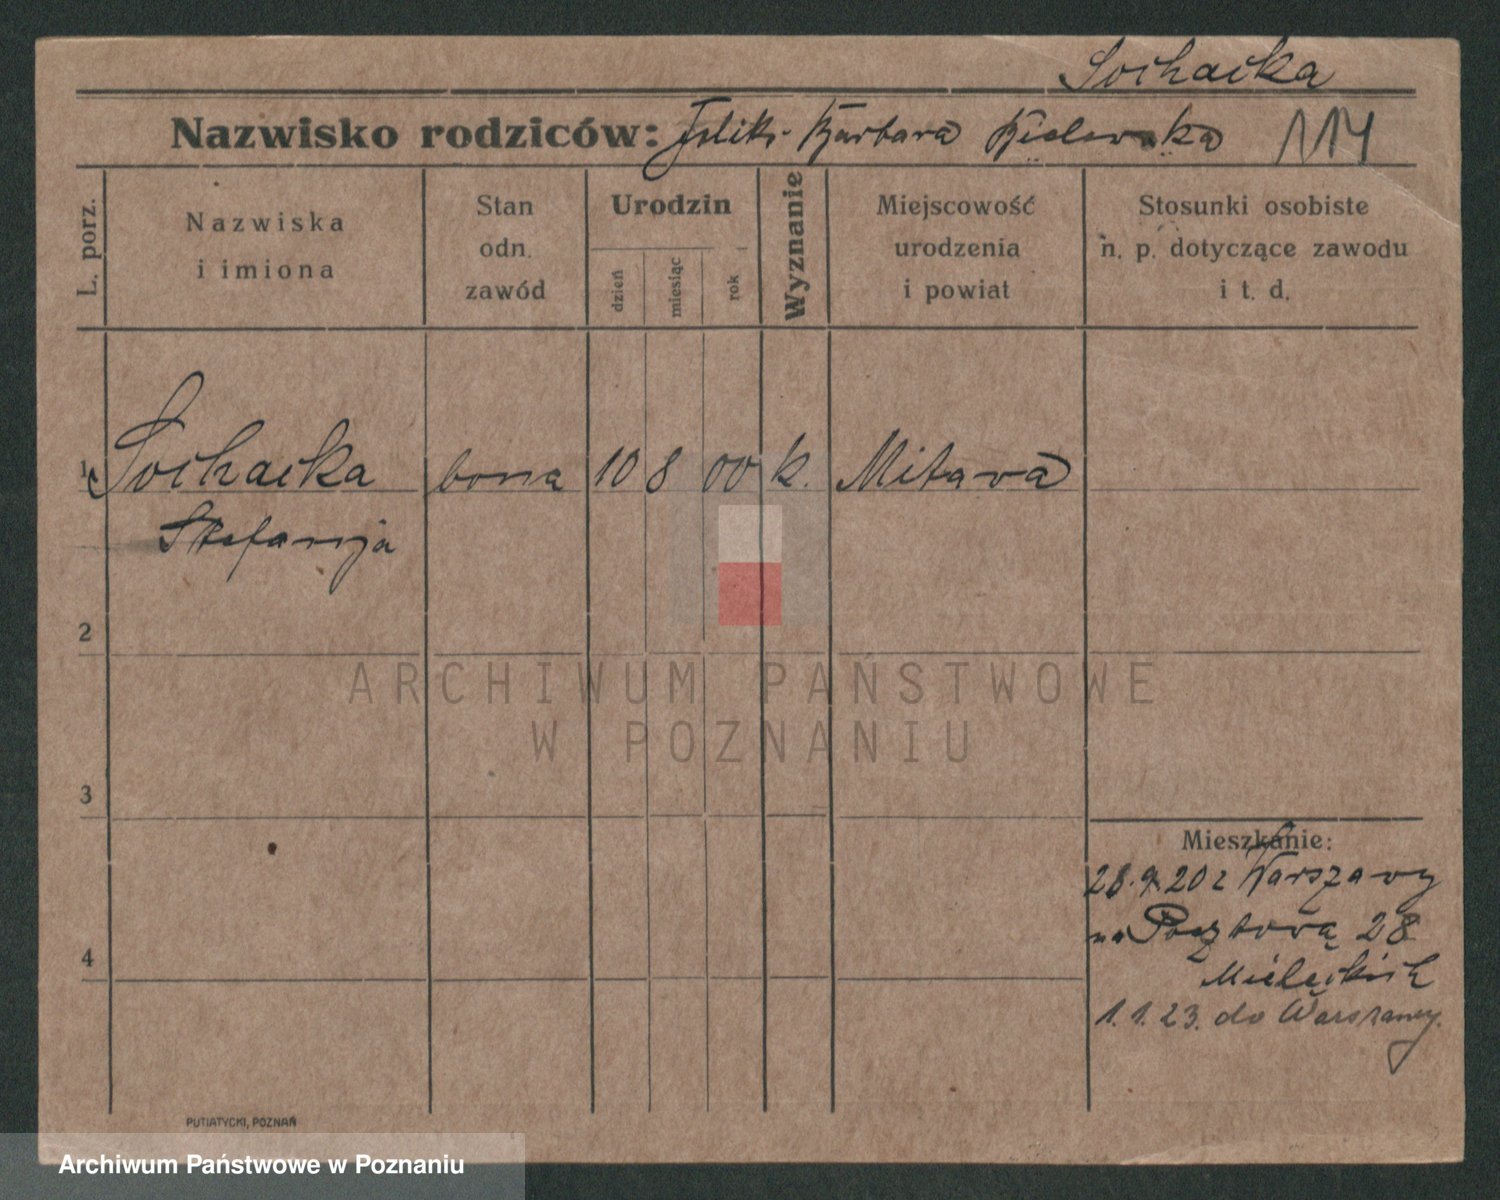 Sochacka
Nazwisko rodziców: Feliks. Barbara Bielawska 114
L. porz.
Nazwiska
i imiona
Stan
odn.
zawód
Urodzin
dzień
miesiąc
rok
Wyznanie
Miejscowość
urodzenia
i powiat
Stosunki osobiste
n. p. dotyczące zawodu
i t. d.
1 Sochacka bona 10 8 00 k. Mitawa
Stefanija
2
ARCHIWUM PAŃSTWOWE
W POZNANIU
3
Mieszkanie:
28.9.20 z Warszawy
na Pocztową 28
4
Mielęckich
1.1.23. do Warszawy.
PUTIATYCKI, POZNAŃ
Archiwum Państwowe w Poznaniu